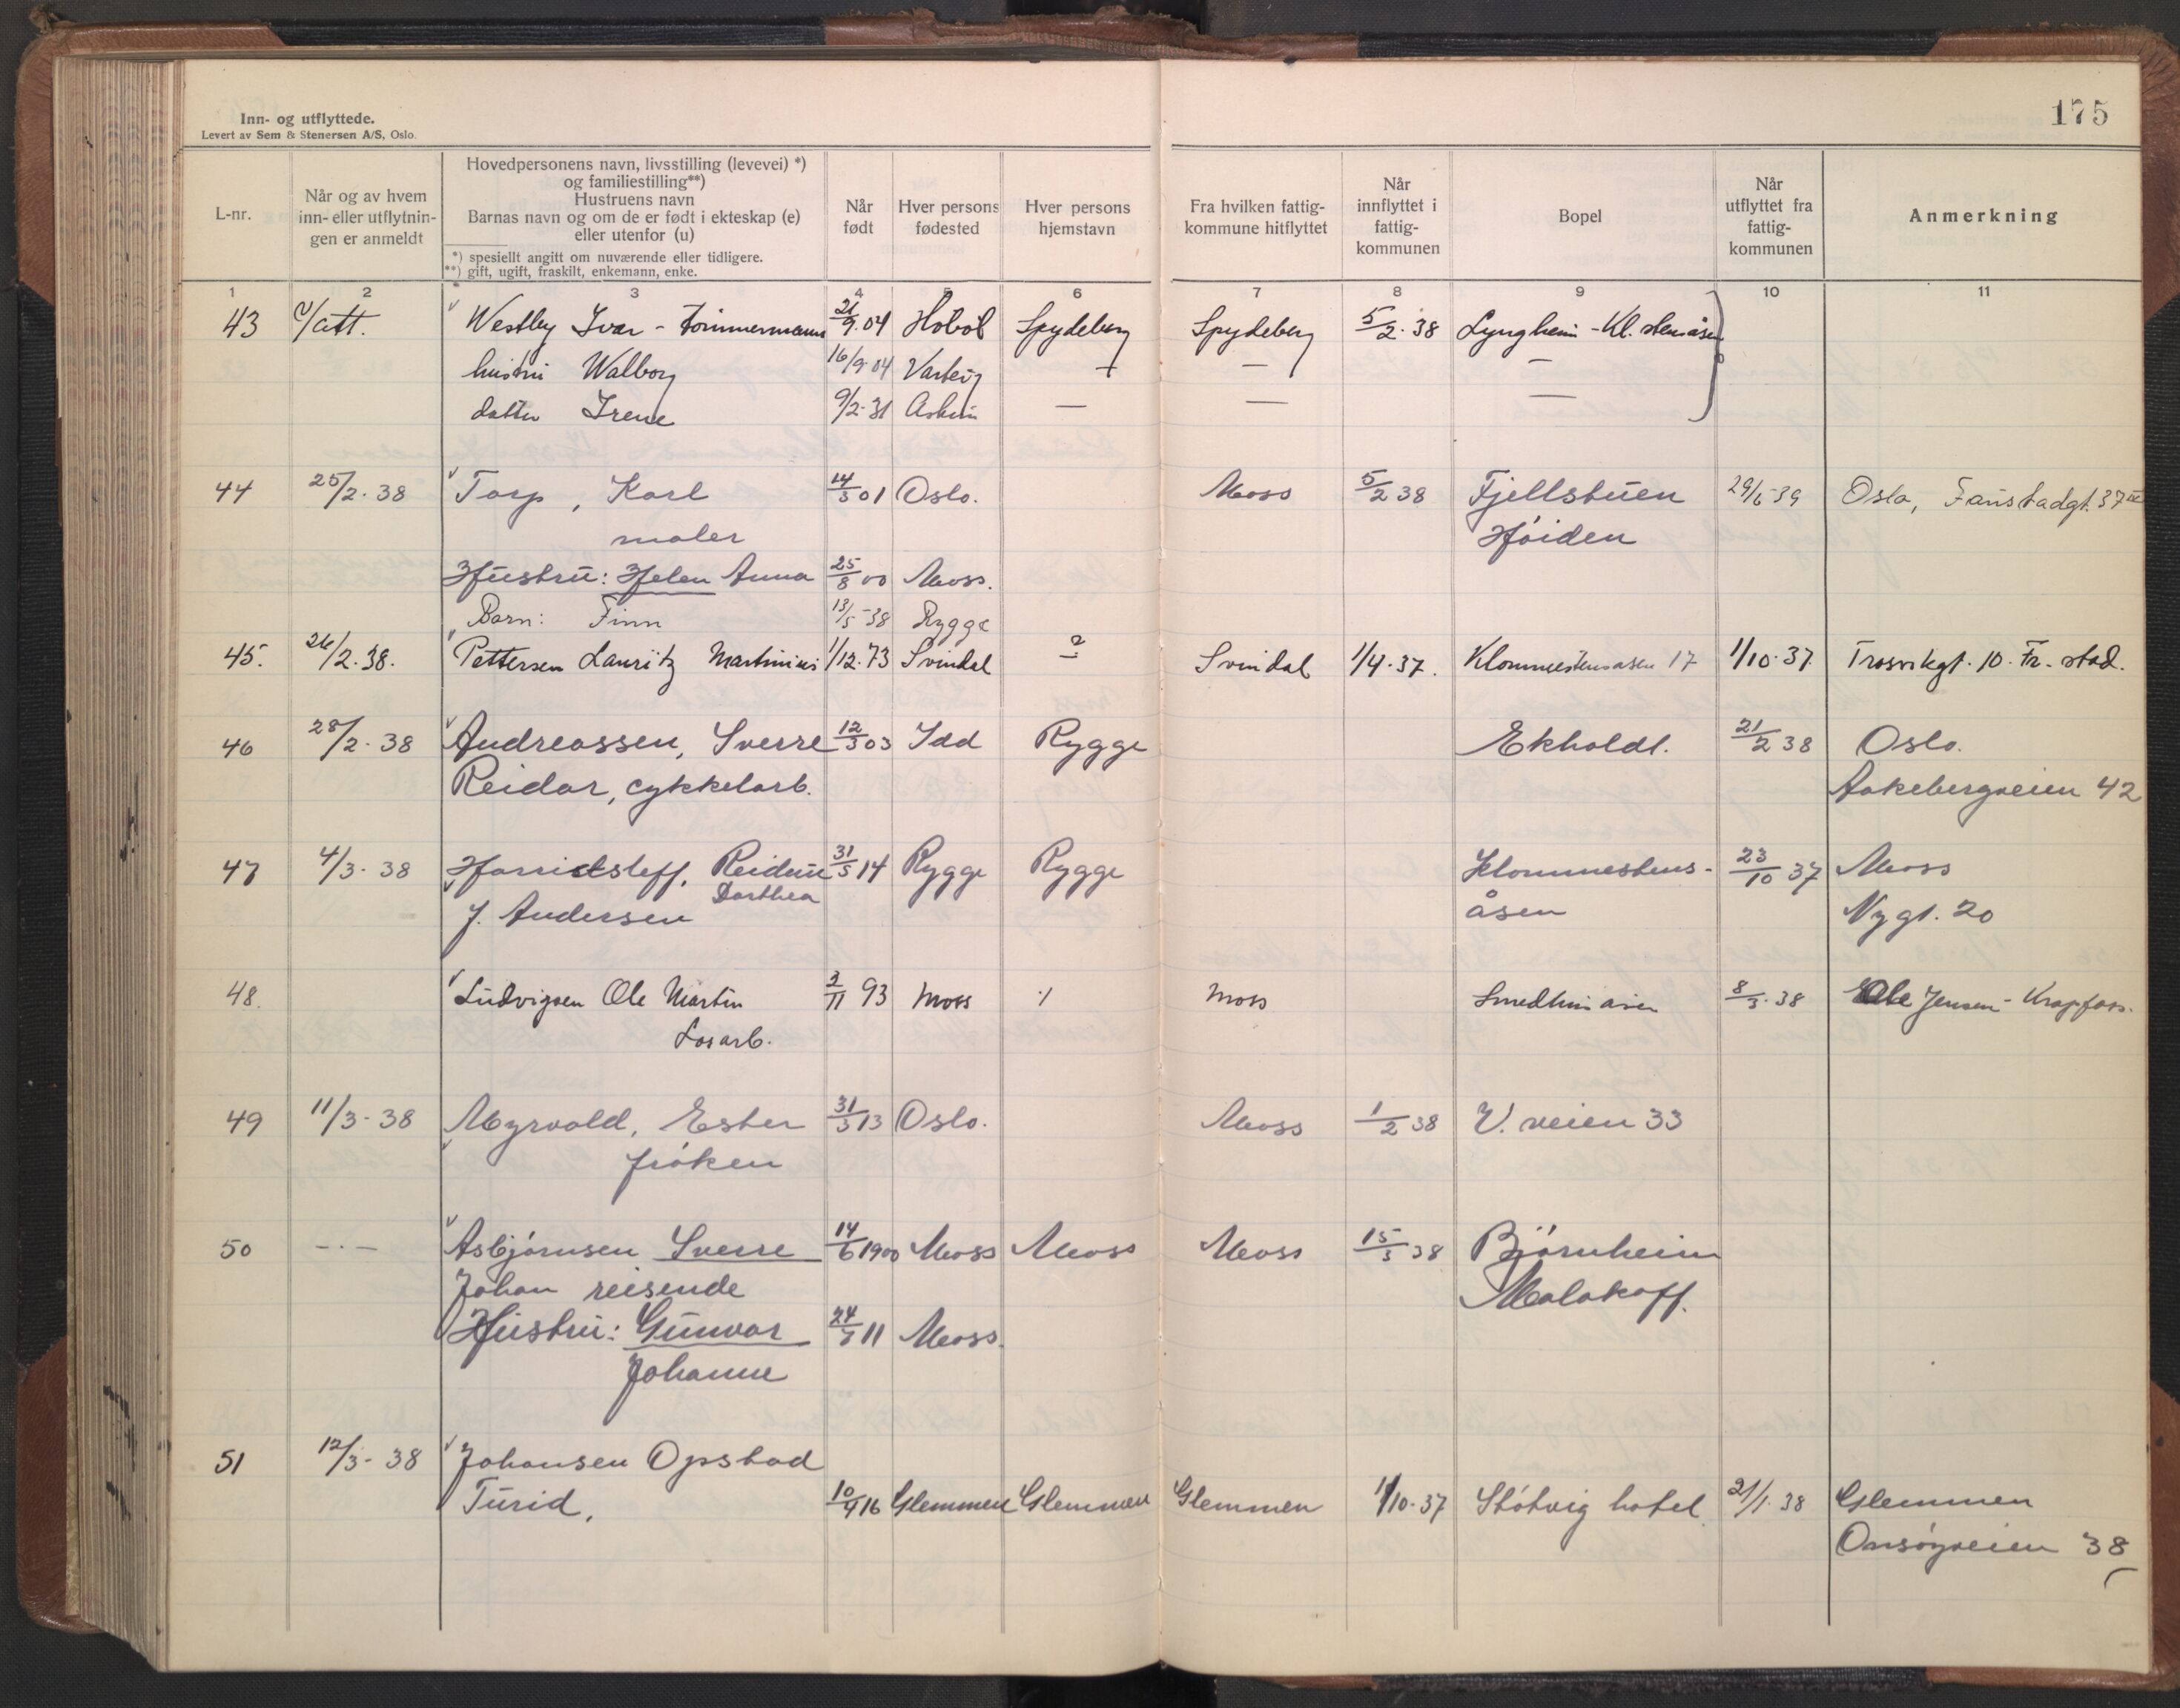 175
Inn- og utflyttede.
Levert av Sem & Stenersen A/S, Oslo.
L-nr.
Når og av hvem inn- eller utflytnin-gen er anmeldt
Hovedpersonens navn, livsstilling (levevei) *)
og familiestilling**)
Hustruens navn
Barnas navn og om de er født i ekteskap (e)
eller utenfor (u)
*) spesiellt angitt om nuværende eller tidligere.
**) gift, ugift, fraskilt, enkemann, enke.
Når født
Hver persons fødested
Hver persons hjemstavn
Fra hvilken fattig-kommune hitflyttet
Når innflyttet i fattig-kommunen
Bopel
Når utflyttet fra fattig-kommunen
Anmerkning
1 2 3 4 5 6 7 8 9 10 11
43 Westby Ivar - tømmermann 21/9.04 Hobøl Spydeberg Spydeberg 5/2.38 Lyngheim - Kl. stensåsen
hustru Walborg 16/9.04 Varteig — — —
datter Irene 9/2.31 Askim — — —
44 25/2.38 Torp, Karl 14/3 01 Oslo. Moss 5/2 38 Fjellstuen 29/6 39 Oslo, Faustadgt. 37 III
maler Høiden
Hustru: Helen Anna 25/8 00 Moss.
Barn: Finn 13/5-38 Rygge
45. 26/2.38. Pettersen Lauritz Martinius 1/12.73 Svindal ? Svindal 1/4.37. Klommestensåsen 17 1/10.37. Trosvikgt. 10. Fr. stad.
46 28/2.38 Andreassen, Sverre 12/3 03 Idd Rygge Ekholdt. 21/2 38 Oslo.
Reidar, cykkelarb. Aakebergveien 42
47 4/3-38 Harridsleff, Reidun 31/5 14 Rygge Rygge Klommestens- 23/10 37 Moss
Dorthea
f. Andersen åsen Nygt. 20
48. Ludvigsen Ole Martin 3/11 93 Moss ./ Moss 8/3.38 Ole Jensen - Krapfoss.
Løsarb.
49 11/3-38 Myrvold, Ester 31/3 13 Oslo. Moss 1/2 38 V. veien 33
frøken
50 -·- Asbjørnsen Sverre 14/6 1900 Moss Moss Moss 15/3 38 Bjørnheim
Johan reisende Malakoff.
Hustru: Gunvor 24/7 11 Moss.
Johanne
51 12/3-38 Johansen Opstad
Turid, 10/9 16 Glemmen Glemmen Glemmen 1/10.37 Støtvig hotel 21/1.38 Glemmen
Onsøyveien 38